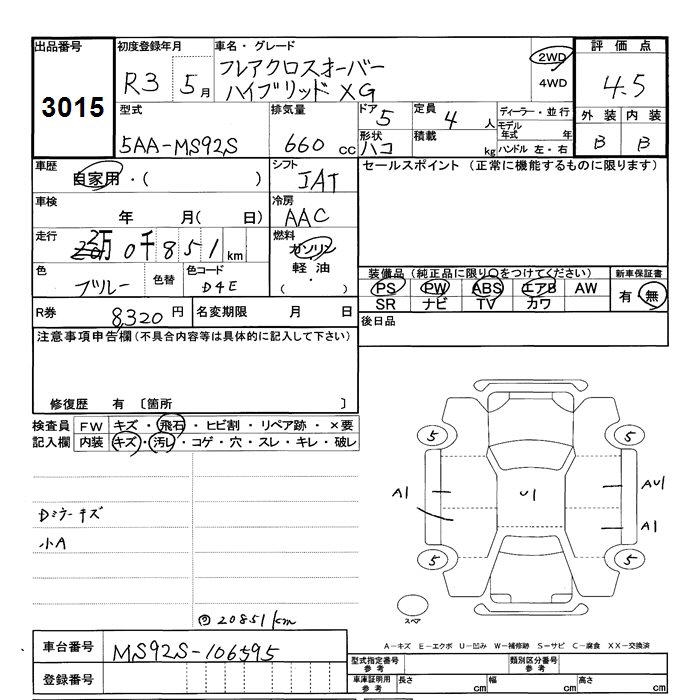 出品番号 初度登録年月 車名・グレード 評価点
3015 R3 5月 フレアクロスオーバー ハイブリッド XG 2WD 4WD 4.5
型式 排気量 ドア 5 定員 4 人 ディーラー・並行 外装 内装
5AA-MS92S 660 cc 形状 ハコ 積載 kg モデル年式 年 ハンドル 左・右 B B
車歴 自家用・( ) シフト IAT セールスポイント (正常に機能するものに限ります)
車検 年 月( 日) 冷房 AAC
走行 2万0千851km 燃料 ガソリン 軽油 ( ・ )
色 ブルー 色替 色コード D4E
装備品 (純正品に限り○をつけてください) 新車保証書
PS PW ABS エアB AW 有・無
SR ナビ TV カワ
R券 8,320円 名変期限 月 日 後日品
注意事項申告欄(不具合内容等は具体的に記入して下さい)
修復歴 有 〔箇所 〕
検査員 FW キズ・飛石・ヒビ割・リペア跡・×要
記入欄 内装 キズ・汚レ・コゲ・穴・スレ・キレ・破レ
Dミラーキズ
小A
5 5
A1 U1 AU1
A1
5 5
スペア
20851km
車台番号 MS92S-106595
登録番号
A-キズ E-エクボ U-凹み W-補修跡 S-サビ C-腐食 XX-交換済
型式指定番号 参考 類別区分番号 参考
車庫証明用 参考 長さ cm 幅 cm 高さ cm